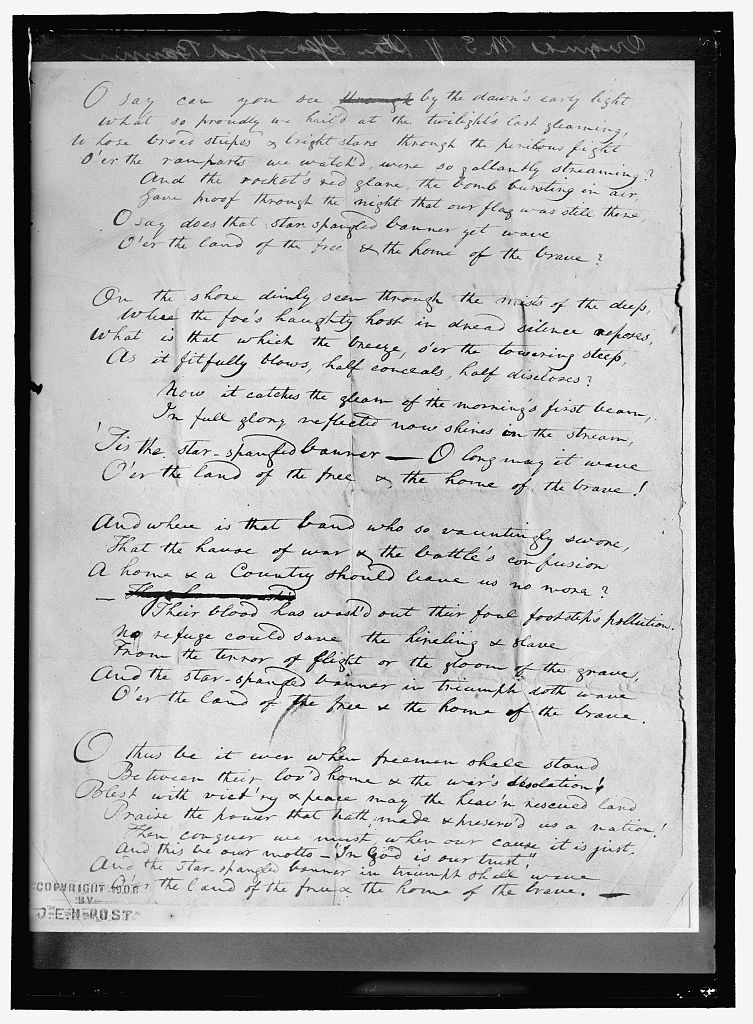 Original M.S. of Star Spangled Banner
O say can you see through by the dawn's early light
What so proudly we hail'd at the twilight's last gleaming,
Whose broad stripes & bright stars through the perilous fight
O'er the ramparts we watch'd, were so gallantly streaming?
And the rocket's red glare, the bomb bursting in air,
Gave proof through the night that our flag was still there,
O say does that star spangled banner yet wave
O'er the land of the free & the home of the brave?
On the shore dimly seen through the mists of the deep,
Where the foe's haughty host in dread silence reposes,
What is that which the breeze, o'er the towering steep,
As it fitfully blows, half conceals, half discloses?
Now it catches the gleam of the morning's first beam,
In full glory reflected now shines in the stream,
'Tis the star-spangled banner — O long may it wave
O'er the land of the free & the home of the brave!
And where is that band who so vauntingly swore,
That the havoc of war & the battle's confusion
A home & a Country should leave us no more?
—
Their blood has wash'd out their foul footstep's pollution.
No refuge could save the hireling & slave
From the terror of flight or the gloom of the grave,
And the star-spangled banner in triumph doth wave
O'er the land of the free & the home of the brave.
O thus be it ever when freemen shall stand
Between their lov'd home & the war's desolation!
Blest with vict'ry & peace may the heav'n rescued land
Praise the power that hath made & preserv'd us a nation!
Then conquer we must, when our cause it is just,
And this be our motto - "In God is our trust,"
And the star-spangled banner in triumph shall wave
O'er the land of the free & the home of the brave. —
COPYRIGHT 1908
BY
J.E.H. POST